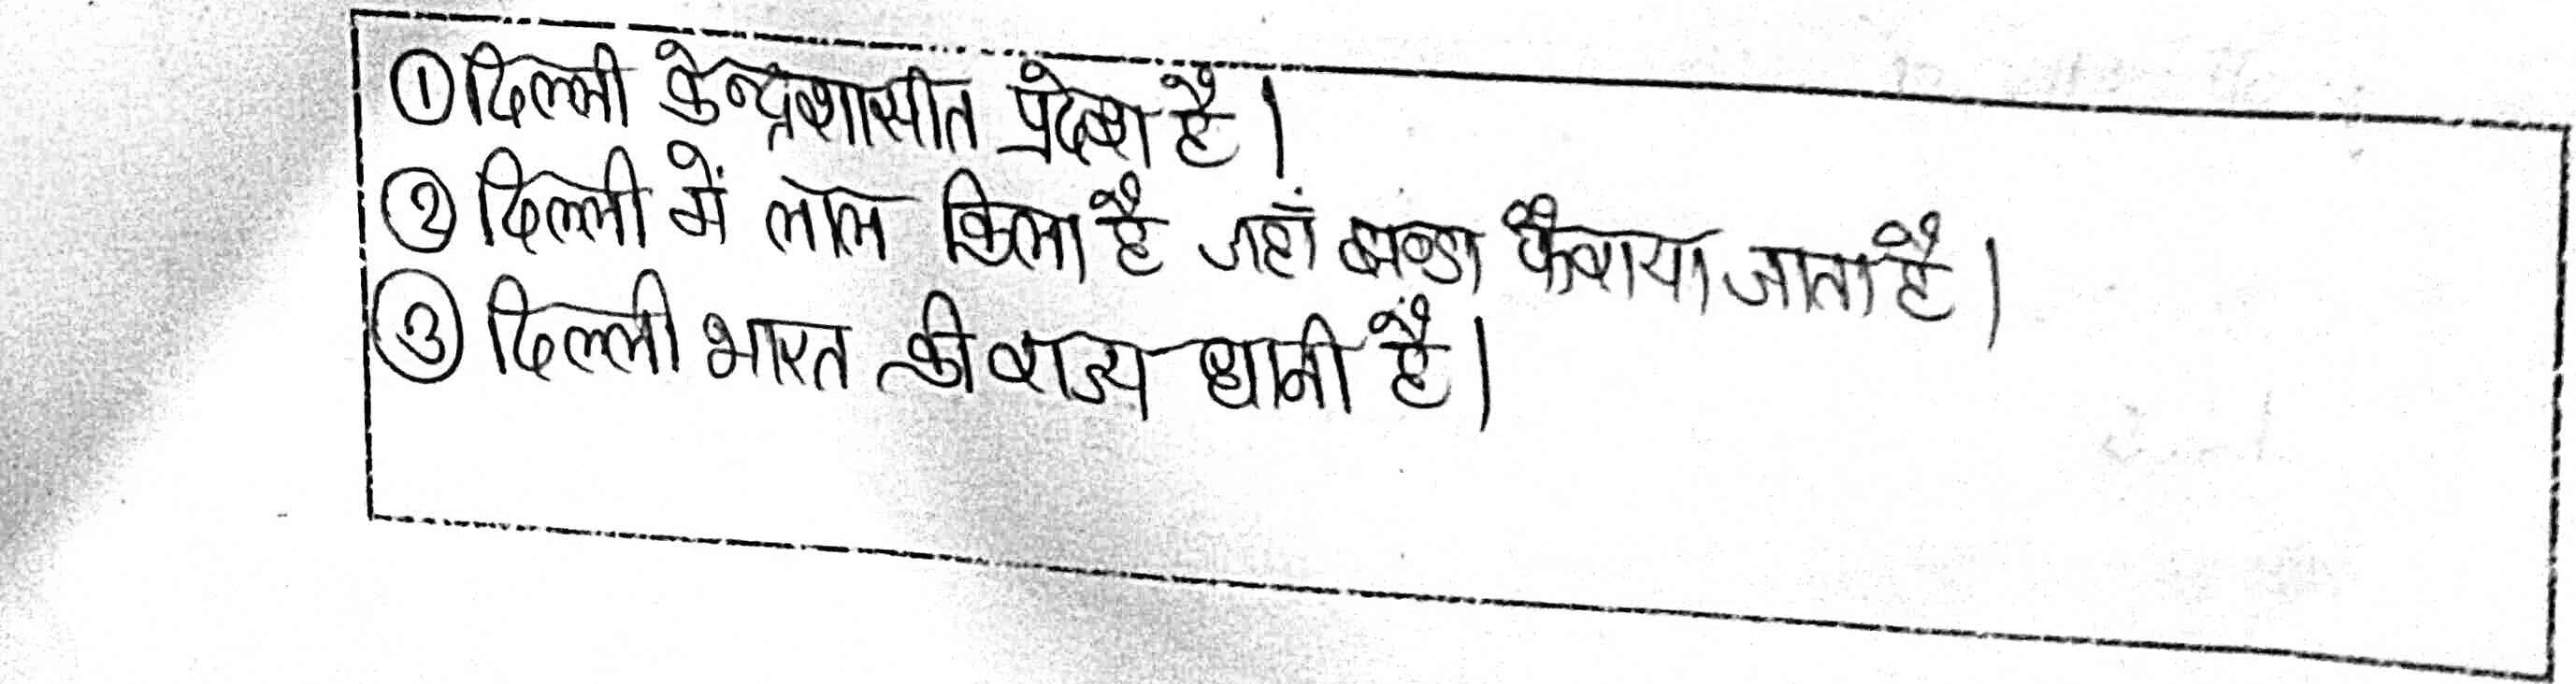 ① दिल्ली केन्द्रशासीत प्रदेश है।
② दिल्ली में लाल किला है जहाँ झण्डा फैराया जाता है।
③ दिल्ली भारत की राज्य धानी है।